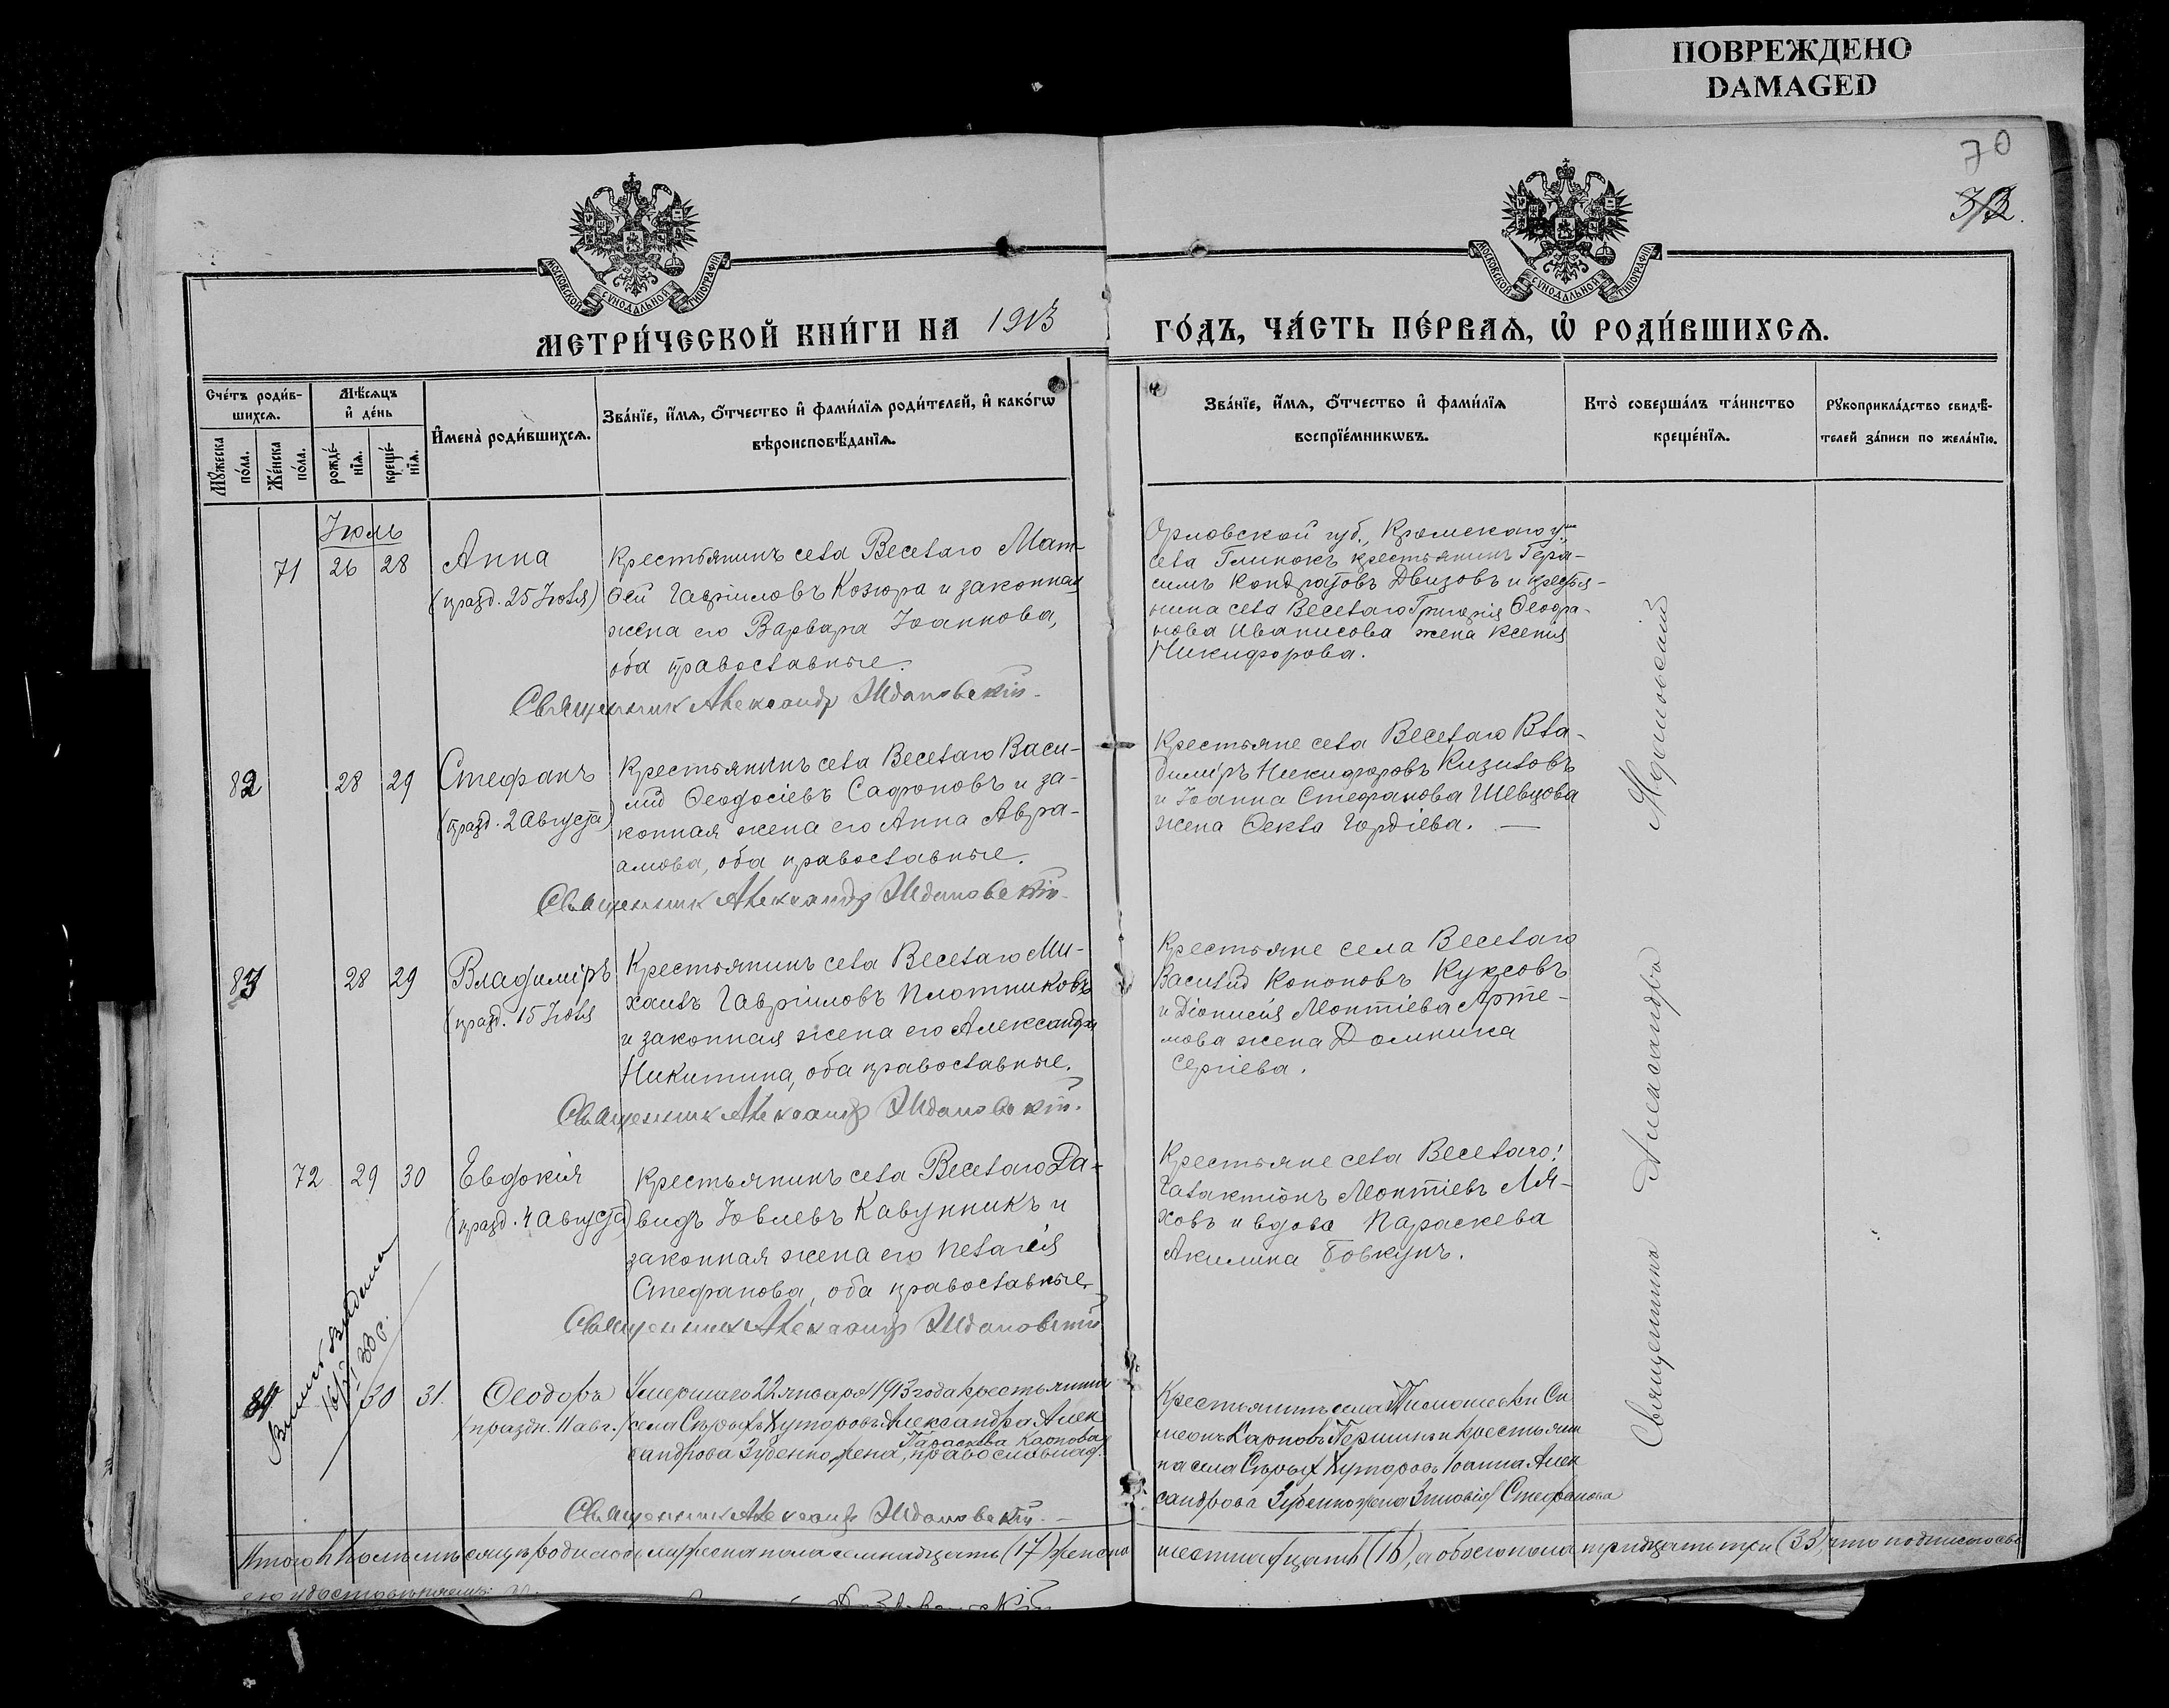 ПОВРЕЖДЕНО
DAMAGED
70
МОСКОВСКОЙ СѴНОДАЛЬНОЙ ТИПОГРАФІИ
МОСКОВСКОЙ СѴНОДАЛЬНОЙ ТИПОГРАФІИ
МЕТРИ́ЧЕСКОЙ КНИ́ГИ НА 1913 ГО́ДЪ, ЧА́СТЬ ПЕ́РВАѦ, Ѡ҆ РОДИ́ВШИХСѦ.
Сче́тъ роди́в-
шихсѧ.
Мꙋ́жеска по́ла.
Же́нска по́ла.
Мѣ́сѧцъ и҆ де́нь
рожде́-нїѧ.
креще́-нїѧ.
И҆мена̀ роди́вшихсѧ.
Зва́нїе, и҆́мѧ, ѻ҆́тчество и҆ фами́лїѧ роди́телей, и҆ како́гѡ
вѣроисповѣ́данїѧ.
Зва́нїе, и҆́мѧ, ѻ҆́тчество и҆ фами́лїѧ
воспрїе́мникѡвъ.
Кто̀ соверша́лъ та́инство
креще́нїѧ.
Рꙋкоприкла́дство свидѣ́-
телей за́писи по жела́нїю.
Іюль
71 26 28 Анна
(празд. 25 Іюля)
Крестьянинъ села Веселаго Мат-
ѳей Гавріиловъ Козюра и законная
жена его Варвара Іоаннова,
оба православные.
Священник Александр Ждановскій.
Орловской губ., Кромскаго у.
села Глинокъ крестьянинъ Гера-
симъ Кондратовъ Двизовъ и крестья-
нина села Веселаго Григорія Ѳеофа-
нова Иванисова жена Ксенія
Никифорова.
82 28 29 Стефанъ
(празд. 2 Августа)
Крестьянинъ села Веселаго Васи-
лій Ѳеодосіевъ Сафроновъ и за-
конная жена его Анна Авра-
амова, оба православные.
Священник Александр Ждановскій.
Крестьяне села Веселаго Вла-
диміръ Никифоровъ Кизиловъ
и Іоанна Стефанова Шевцова
жена Ѳекла Гордіева.
83 28 29 Владиміръ
(празд. 15 Іюля
Крестьянинъ села Веселаго Ми-
хаилъ Гавріиловъ Плотниковъ
и законная жена его Александра
Никитина, оба православные.
Священник Александр Ждановскій.
Крестьяне села Веселаго
Василій Кононовъ Куксовъ
и Діонисія Леонтіева Арте-
мова жена Домника
Сергіева.
72 29 30 Евдокія
(празд. 4 Августа)
Крестьянинъ села Веселаго Да-
видъ Іовлевъ Кавунникъ и
законная жена его Пелагія
Стефанова, оба православные.
Священник Александр Ждановскій
Крестьяне села Веселаго:
Галактіонъ Леонтіевъ Ля-
ховъ и вдова Параскева
Акилина Бовкунъ.
выдана
84 30 31. Ѳеодоръ
(праздн. 11 авг.)
Умершаго 22 января 1913 года крестьянина
села Сѣрыхъ Хуторовъ Александра Алек
Параскева Карпова
сандрова Зубенко жена, православная.
Священник Александр Ждановскій.
Крестьянинъ села Тимошевки Си
меонъ Карповъ Першинъ и крестьяни
на села Сѣрыхъ Хуторовъ Іоанна Алек
сандрова Зубенко жена Зиновія Стефанова
Священникъ Александръ Ждановскій
Итого въ Іюлѣ мѣсяцѣ родилось мужеска пола семнадцать (17) женска шестнадцать (16), а обоего пола тридцать три (33) что подписью сво
ею удостовѣряемъ: